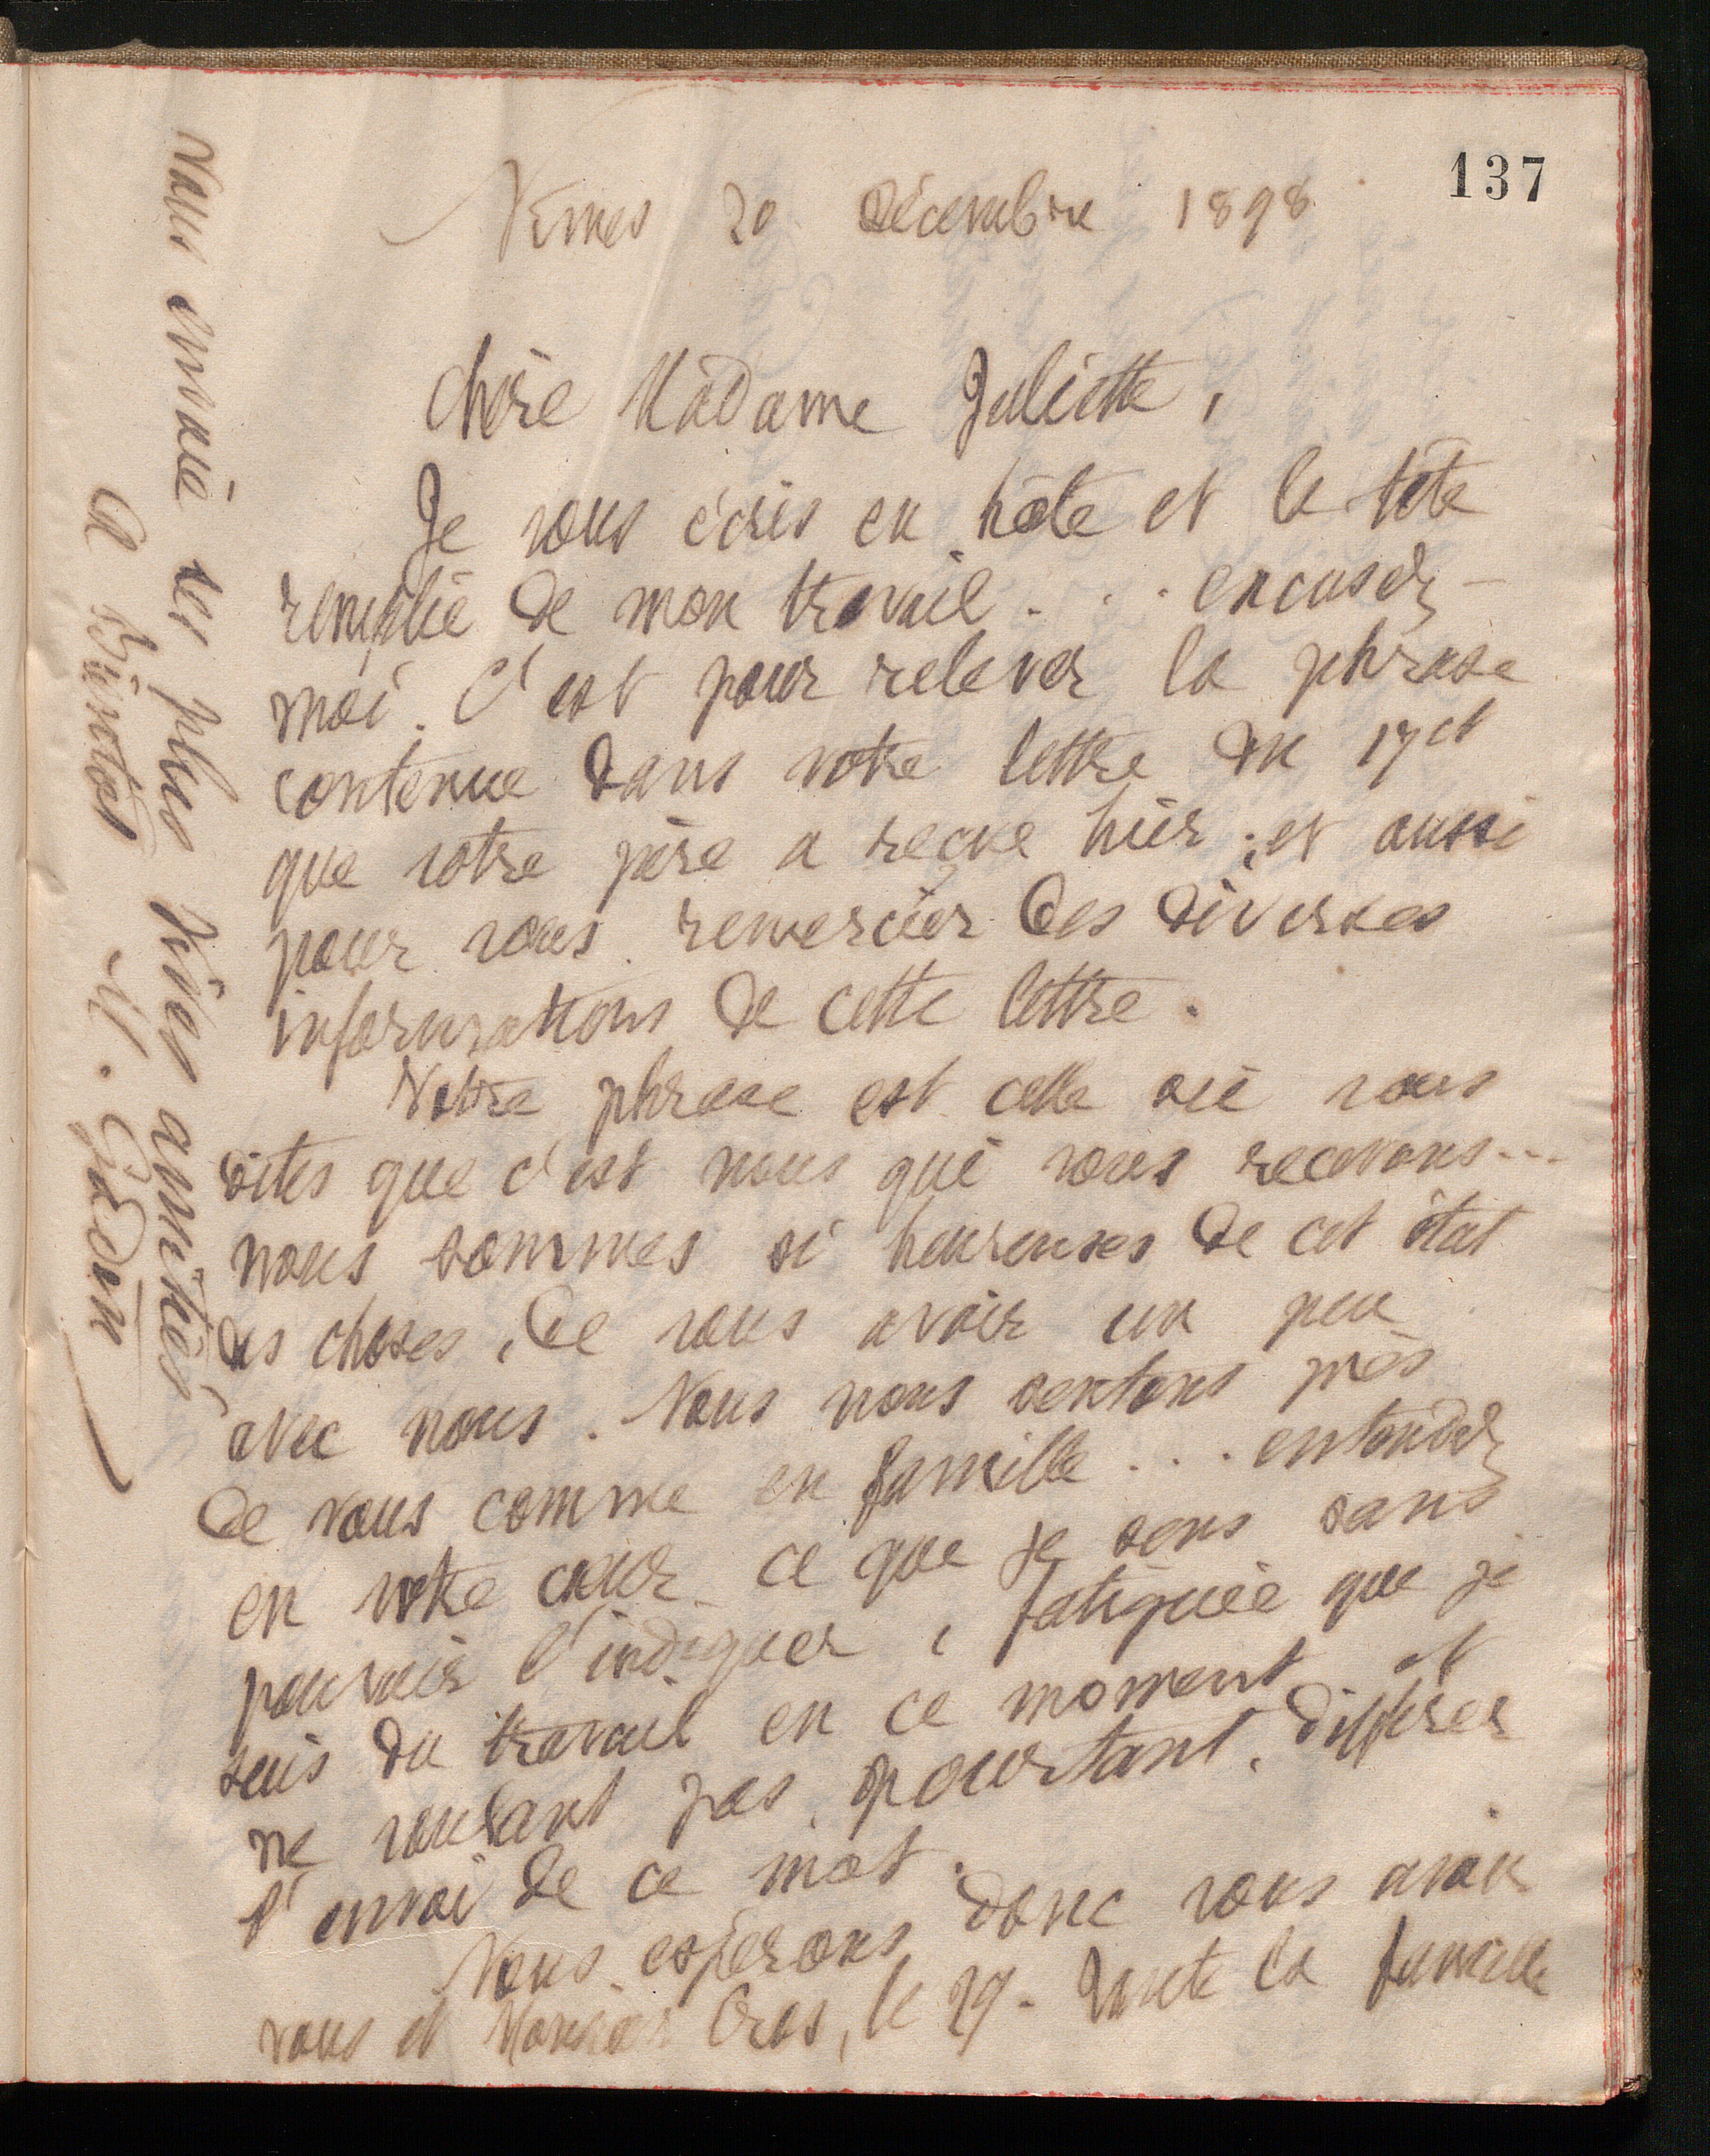 137
Nimes 20 Décembre 1898
Chère Madame Juliette,
Je vous écris en hâte et la tête
remplie de mon travail... excusez-
moi. C'est pour relever la phrase
contenue dans votre lettre du 17 ct
que votre père a reçue hier; et aussi
pour vous remercier des diverses
informations de cette lettre.
Votre phrase est celle où vous
dites que c'est nous qui vous recevons...
nous sommes si heureuses de cet état
des choses, de vous avoir un peu
avec nous. Nous nous sentons près
de vous comme en famille... entendez
en votre cœur ce que je sens sans
pouvoir l'indiquer, fatiguée que je
suis du travail en ce moment et
ne voulant pas pourtant différer
l'envoi de ce mot.
Nous espérons donc vous avoir
vous et Monsieur Cros, le 29. Toute la famille
vous envoie ses plus vives amitiés,
A Bientôt M. Gédon